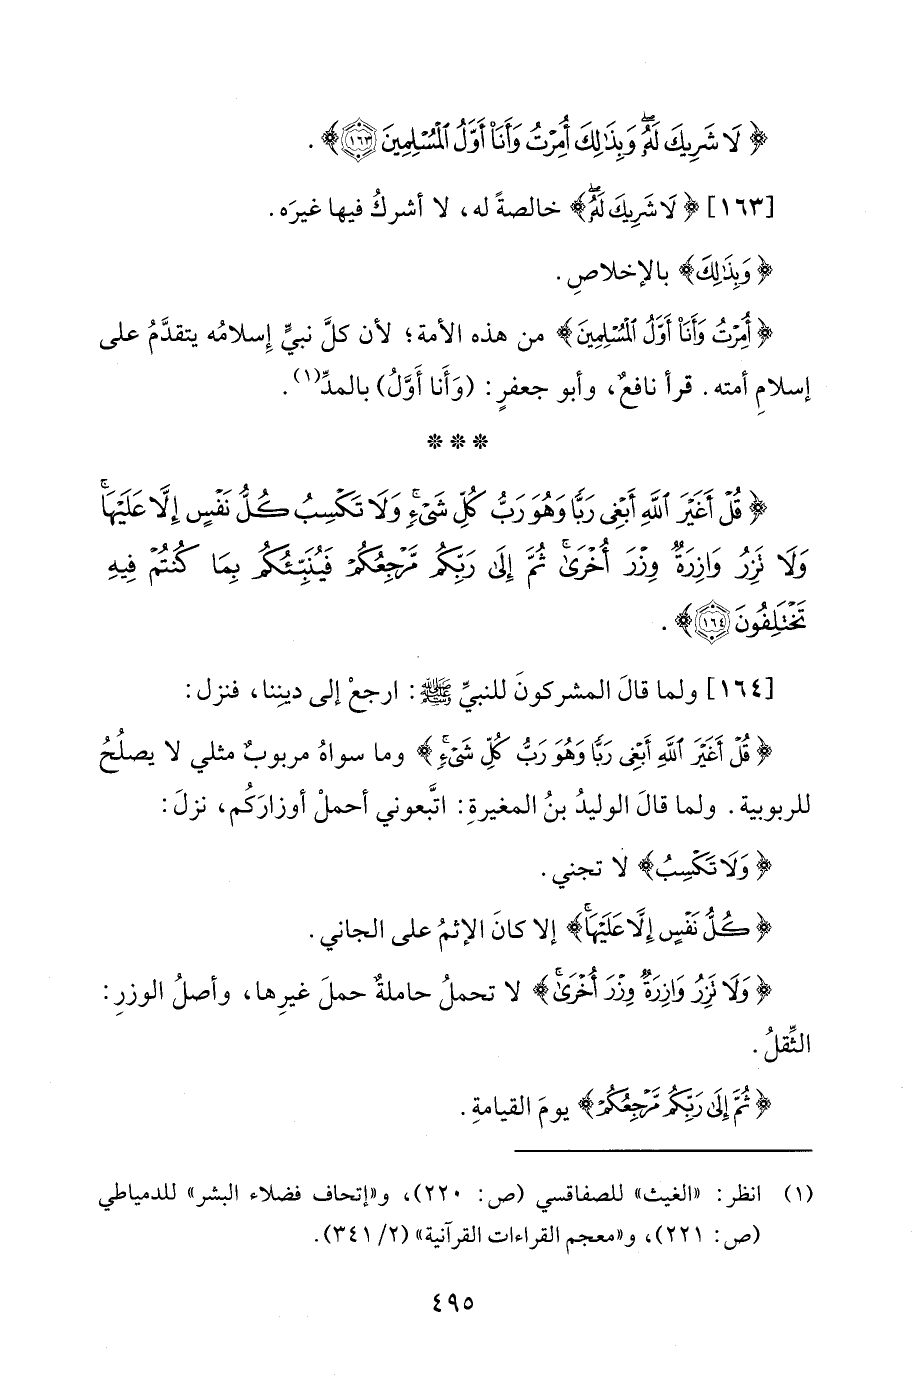 ﴿ لَا شَرِيكَ لَهُۥۖ وَبِذَٰلِكَ أُمِرْتُ وَأَنَا۠ أَوَّلُ ٱلْمُسْلِمِينَ ١٦٣ ﴾ .
[١٦٣] ﴿ لَا شَرِيكَ لَهُۥۖ ﴾ خالصةً له، لا أشركُ فيها غيرَه.
﴿ وَبِذَٰلِكَ ﴾ بالإخلاصِ.
﴿ أُمِرْتُ وَأَنَا۠ أَوَّلُ ٱلْمُسْلِمِينَ ﴾ من هذه الأمة؛ لأن كلَّ نبيٍّ إسلامُه يتقدَّمُ على
إسلامِ أمته. قرأ نافعٌ، وأبو جعفرٍ: (وَأَنا أَوَّلُ) بالمدِّ(١).
* * *
﴿ قُلْ أَغَيْرَ ٱللَّهِ أَبْغِى رَبًّا وَهُوَ رَبُّ كُلِّ شَىْءٍۚ وَلَا تَكْسِبُ كُلُّ نَفْسٍ إِلَّا عَلَيْهَاۚ
وَلَا نَزِرُ وَازِرَةٌ وِزْرَ أُخْرَىٰۚ ثُمَّ إِلَىٰ رَبِّكُم مَّرْجِعُكُمْ فَيُنَبِّئُكُم بِمَا كُنتُمْ فِيهِ
تَخْتَلِفُونَ ١٦٤ ﴾ .
[١٦٤] ولما قالَ المشركونَ للنبيِّ ﷺ: ارجعْ إلى ديننِا، فنزل:
﴿ قُلْ أَغَيْرَ ٱللَّهِ أَبْغِى رَبًّا وَهُوَ رَبُّ كُلِّ شَىْءٍۚ ﴾ وما سواهُ مربوبٌ مثلي لا يصلُحُ
للربوبية. ولما قالَ الوليدُ بنُ المغيرةِ: اتَّبعوني أحملْ أوزارَكُم، نزلَ:
﴿ وَلَا تَكْسِبُ ﴾ لا تجني.
﴿ كُلُّ نَفْسٍ إِلَّا عَلَيْهَاۚ ﴾ إلا كانَ الإثمُ على الجاني.
﴿ وَلَا نَزِرُ وَازِرَةٌ وِزْرَ أُخْرَىٰۚ ﴾ لا تحملُ حاملةٌ حملَ غيرِها، وأصلُ الوزرِ:
الثِّقلُ.
﴿ ثُمَّ إِلَىٰ رَبِّكُم مَّرْجِعُكُمْ ﴾ يومَ القيامةِ.
(١) انظر: «الغيث» للصفاقسي (ص: ٢٢٠)، و«إتحاف فضلاء البشر» للدمياطي
(ص: ٢٢١)، و«معجم القراءات القرآنية» (٢/ ٣٤١).
٤٩٥